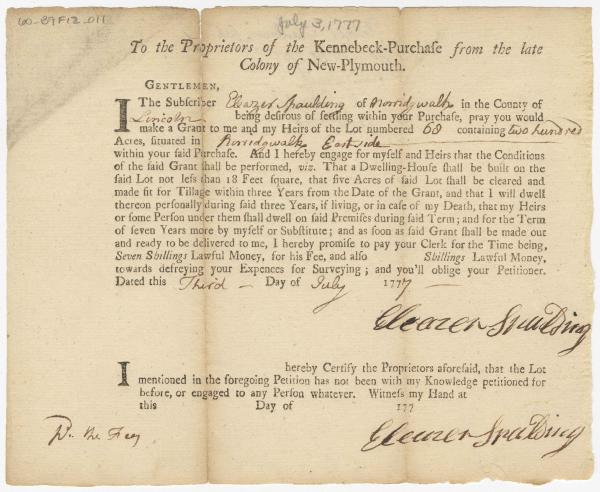 60-89F12_011
July 3, 1777
To the Proprietors of the Kennebeck-Purchaſe from the late
Colony of New-Plymouth.
GENTLEMEN,
I The Subſcriber Eleazer Spaulding of Norridgwalk in the County of
Lincoln being deſirous of ſettling within your Purchaſe, pray you would
make a Grant to me and my Heirs of the Lot numbered 68 containing two hundred
Acres, situated in Norridgwalk East side
within your ſaid Purchaſe. And I hereby engage for myſelf and Heirs that the Conditions
of the ſaid Grant ſhall be performed, viz. That a Dwelling-Houſe ſhall be built on the
ſaid Lot not leſs than 18 Feet ſquare, that five Acres of ſaid Lot ſhall be cleared and
made fit for Tillage within three Years from the Date of the Grant, and that I will dwell
thereon perſonally during ſaid three Years, if living, or in caſe of my Death, that my Heirs
or ſome Perſon under them ſhall dwell on ſaid Premiſes during ſaid Term; and for the Term
of ſeven Years more by myſelf or Subſtitute; and as ſoon as ſaid Grant ſhall be made out
and ready to be delivered to me, I hereby promiſe to pay your Clerk for the Time being,
Seven Shillings Lawful Money, for his Fee, and alſo Shillings Lawful Money,
towards defreying your Expences for Surveying; and you'll oblige your Petitioner.
Dated this Third Day of July 1777
Eleazer Spaulding
I hereby Certify the Proprietors aforeſaid, that the Lot
mentioned in the foregoing Petition has not been with my Knowledge petitioned for
before, or engaged to any Perſon whatever. Witneſs my Hand at
this Day of 177
Eleazer Spaulding
the Fees